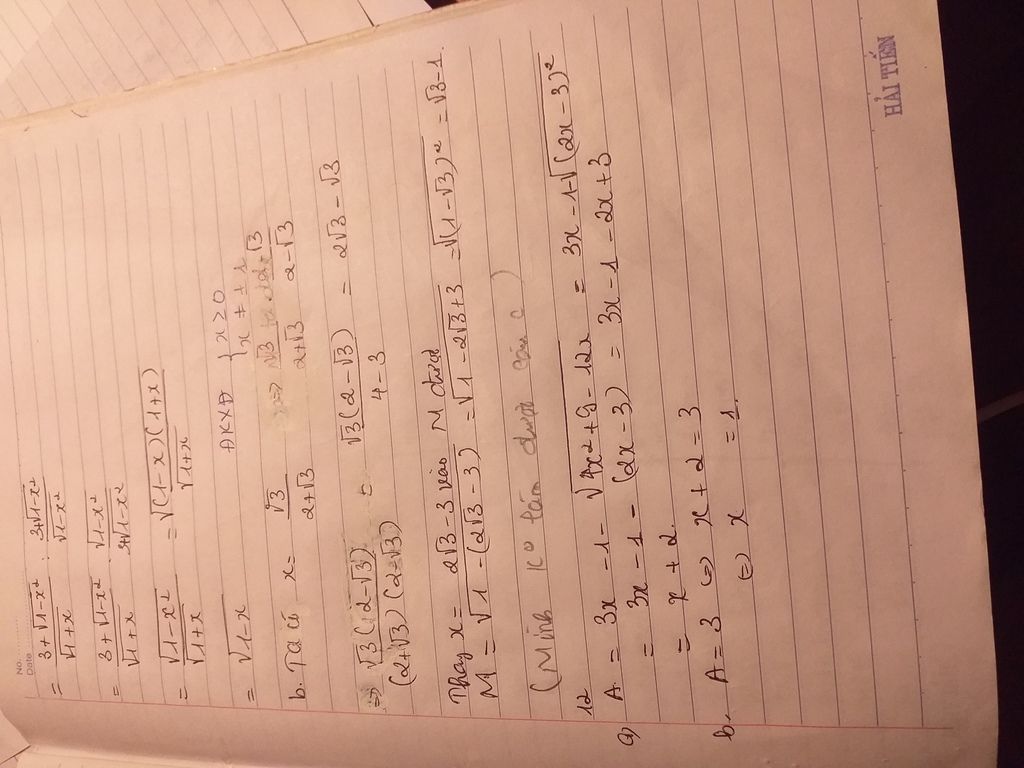 No.
Date
= 3 + √1-x² / √1+x : 3+√1-x² / √1-x²
= 3 + √1-x² / √1+x . √1-x² / 3+√1-x²
= √1-x² / √1+x = √(1-x)(1+x) / √1+x
= √1-x ĐKXĐ { x > 0
x ≠ ±1
b. Ta có x = √3 / 2+√3
=> √3(2-√3) / (2+√3)(2-√3) = √3(2-√3) / 4-3 = 2√3 - √3
Thay x = 2√3 - 3 vào M được
M = √1 - (2√3 - 3) = √1 - 2√3 + 3 = √(1-√3)² = √3 - 1.
(Mình k° làm được câu c)
12
a) A = 3x - 1 - √4x² + 9 - 12x = 3x - 1 - √(2x - 3)²
= 3x - 1 - (2x - 3) = 3x - 1 - 2x + 3
= x + 2.
b. A = 3 (=) x + 2 = 3
(=) x = 1.
HẢI TIẾN